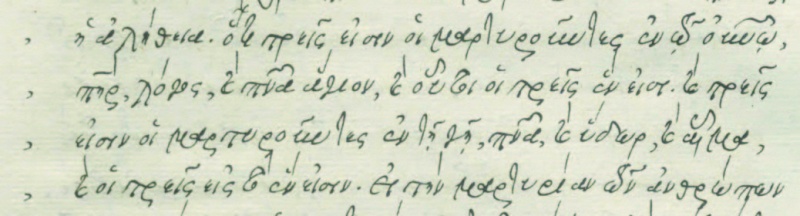 ἡ ἀλήθεια. ὅτι τρεῖς εἰσιν οἱ μαρτυροῦντες ἐν τῷ οὐνῷ,
πηρ, λόγος, ϗ πνα ἅγιον, ϗ οὗτοι οἱ τρεῖς ἕν εἰσι. ϗ τρεῖς
εἰσιν οἱ μαρτυροῦντες ἐν τῇ γῇ, πνα, ϗ ὕδωρ, ϗ αἷμα,
ϗ οἱ τρεῖς εἰς τὸ ἕν εἰσιν. εἰ τὴν μαρτυρίαν τῶν ἀνθρώπων